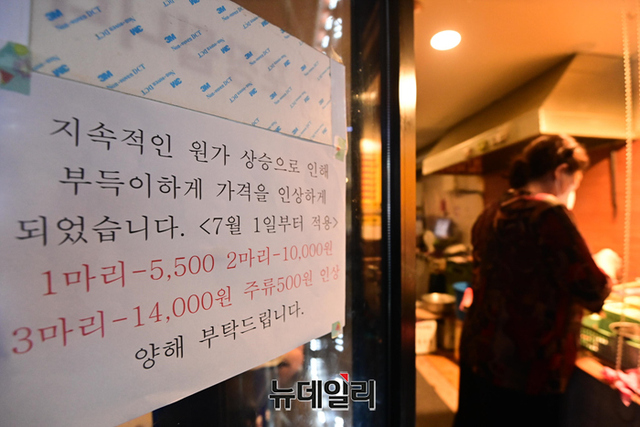 지속적인 원가 상승으로 인해
부득이하게 가격을 인상하게
되었습니다. <7월 1일부터 적용>
1마리-5,500 2마리-10,000원
3마리-14,000원 주류500원 인상
양해 부탁드립니다.
뉴데일리